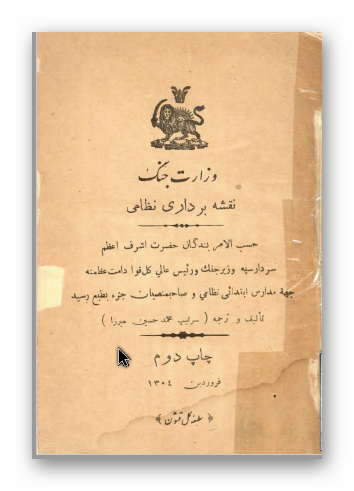 وزارت جنگ
نقشه برداری نظامی
حسب الامر بندگان حضرت اشرف اعظم
سردار سپه وزیر جنگ و رئیس عالی کل قوا دامت عظمته
جهة مدارس ابتدائی نظامی و صاحبمنصبان جزء بطبع رسید
تألیف و ترجمه ( سرتیپ محمد حسین میرزا )
چاپ دوم
فروردین ۱۳۰٤
﴿ مطبعه کل قشون ﴾